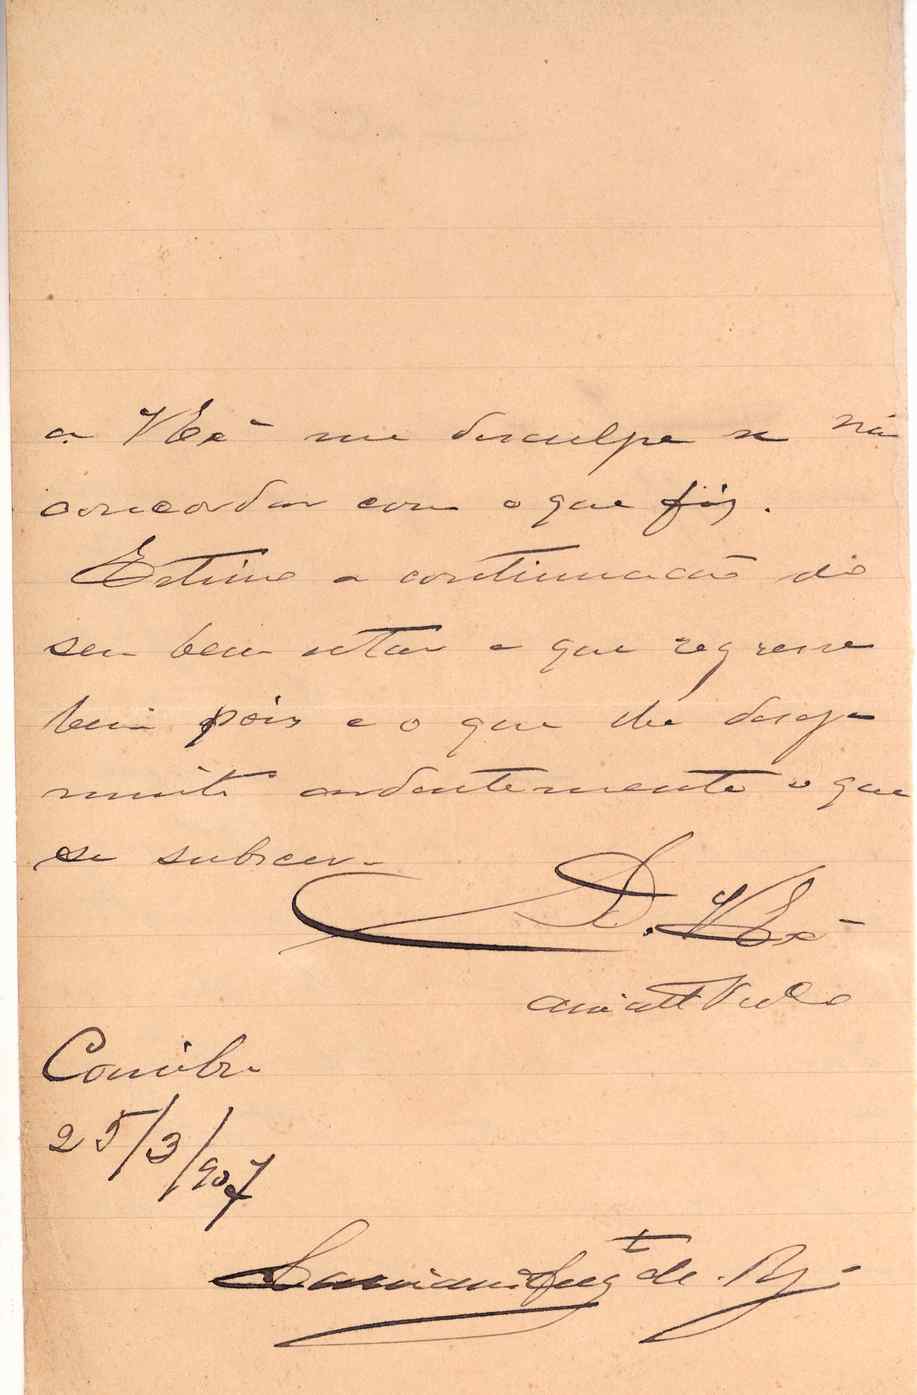 a VExª me desculpe se não
concordar com o que fiz.
Estimo a continuação do
seu bem estar e que regresse
bem pois é o que lhe deseja
muito ardentemente o que
se subscreve
D. VExª
Coimbra
25/3/907
de